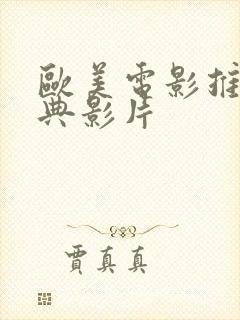 歐美電影推
典影片
賈真真